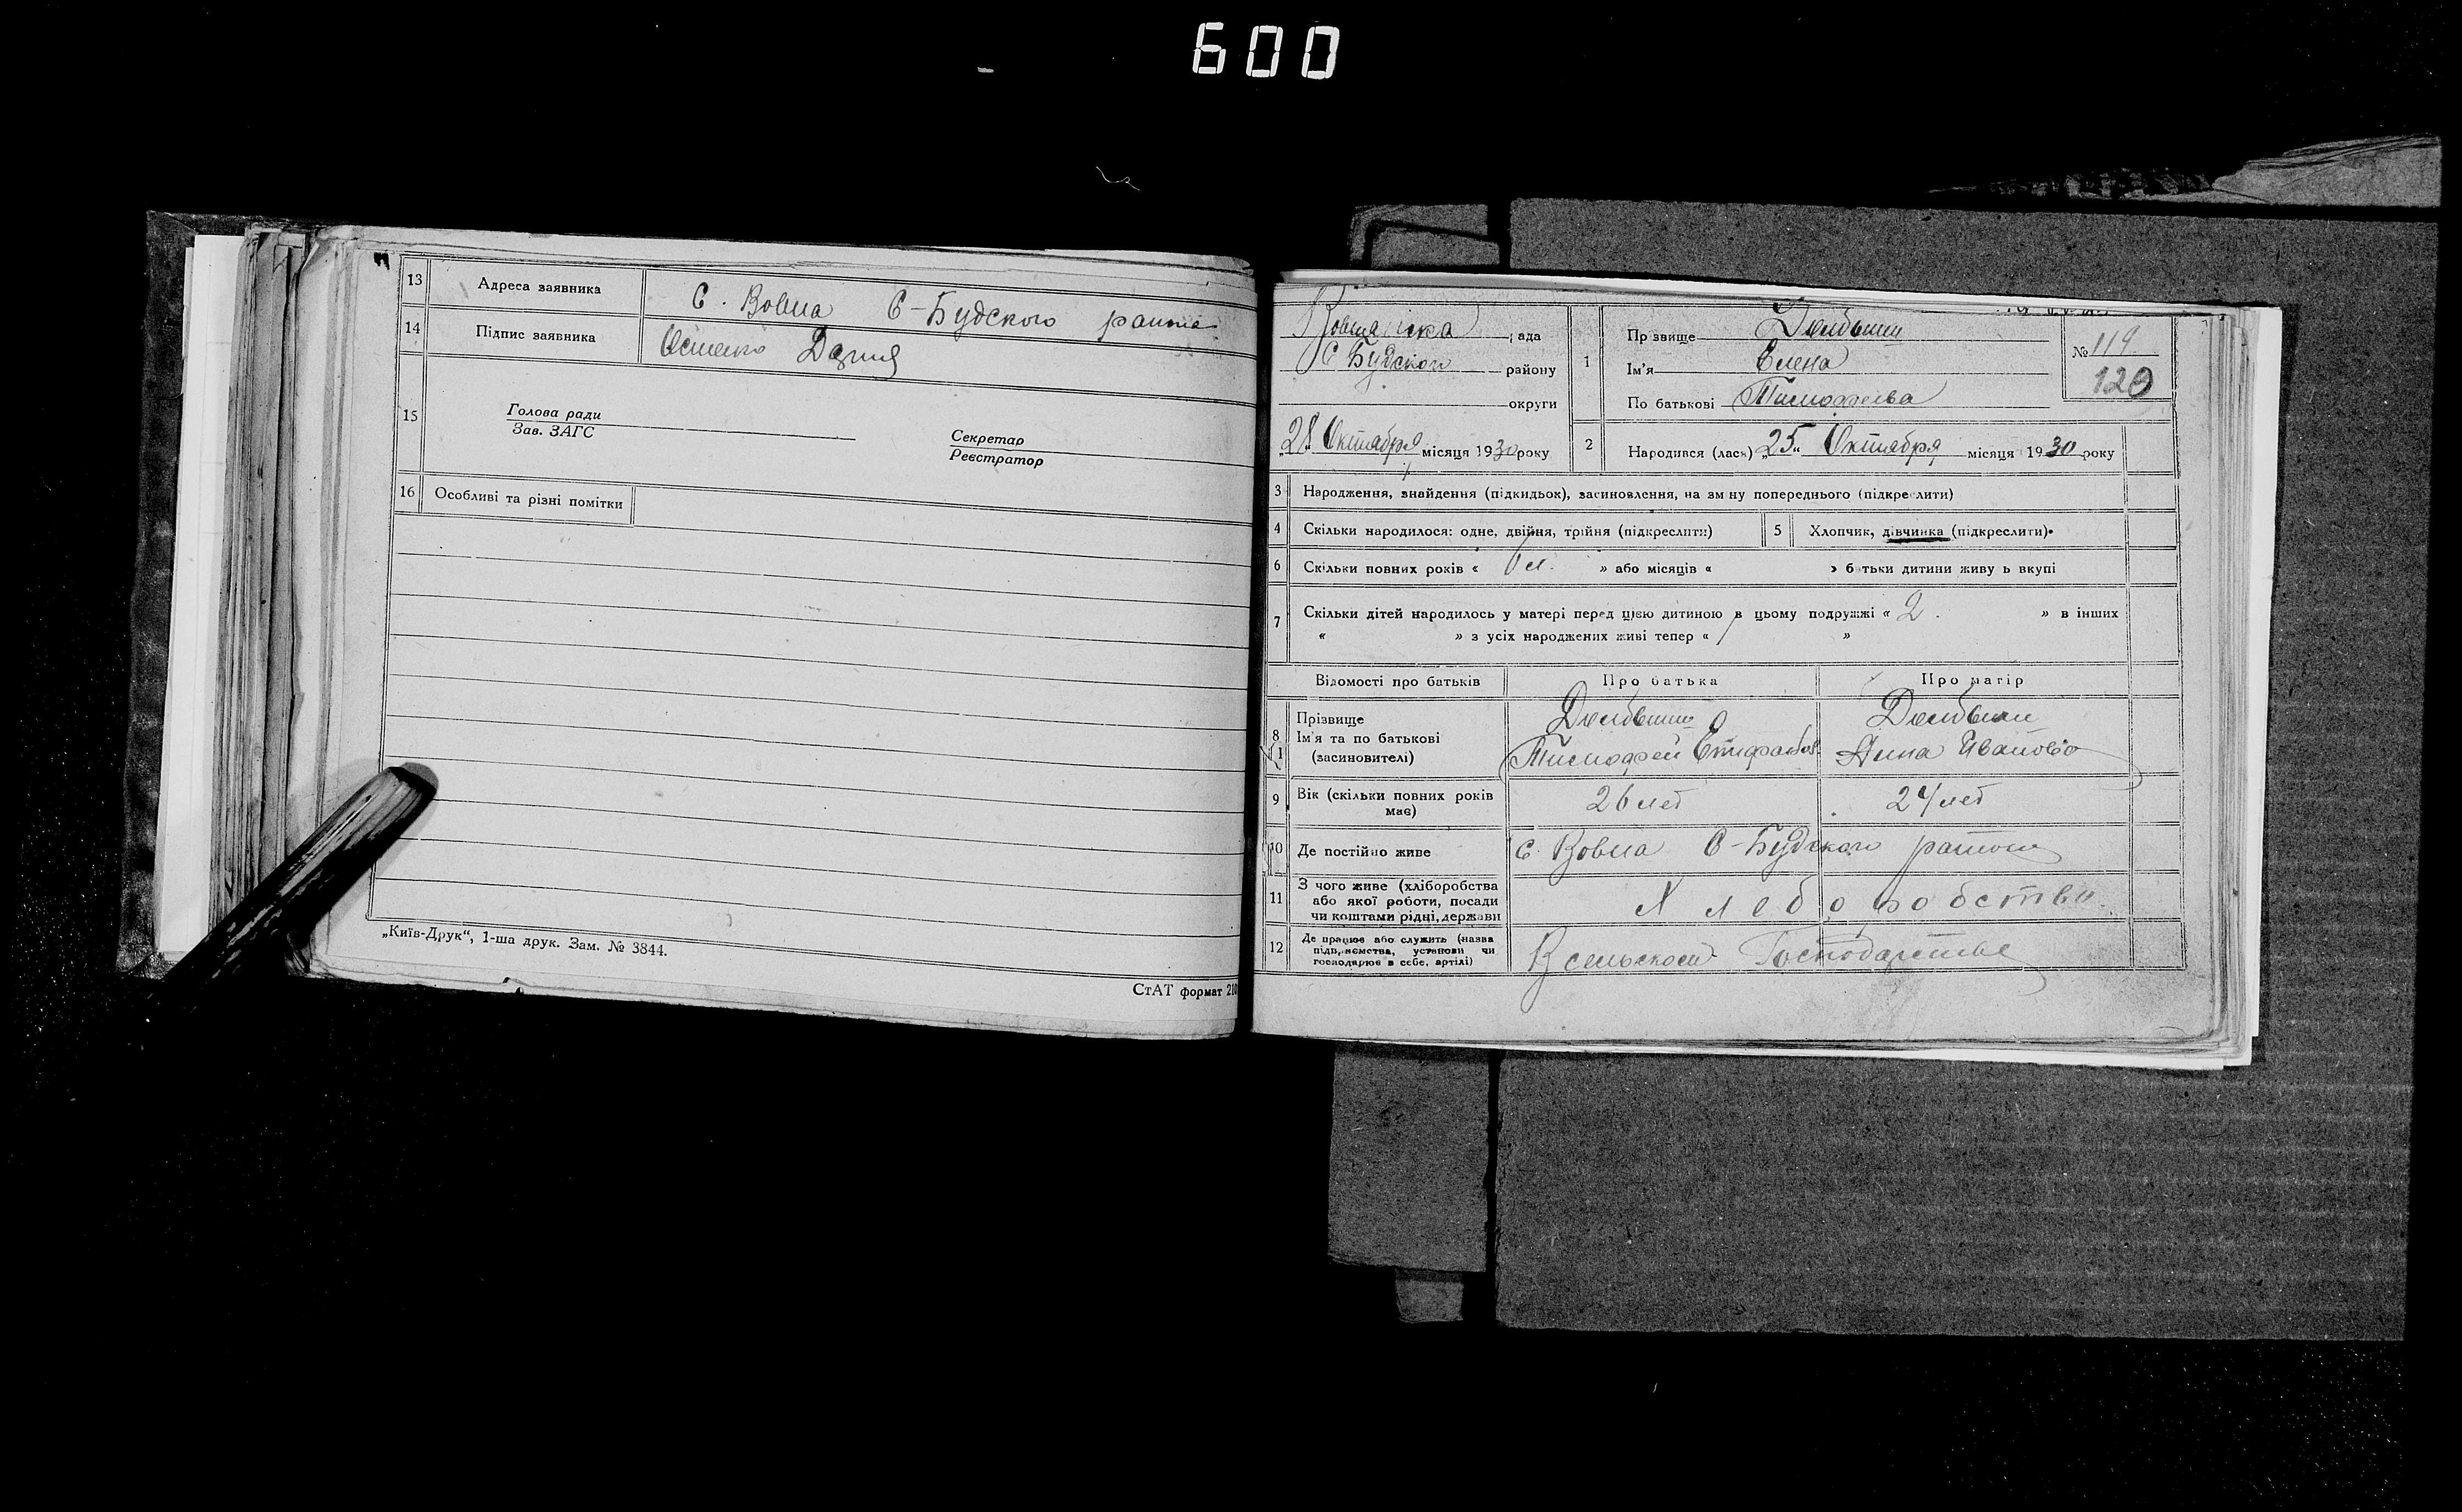 600
13 Адреса заявника С. Вовна С-Будского
14 Підпис заявника
15 Голова ради
Зав. ЗАГС
Секретар
Реєстратор
16 Особливі та різні помітки
„Київ-Друк“, 1-ша друк. Зам. № 3844.
СтАТ формат 210
рада
С Будского району
округи
„28“ Октября місяця 1930 року
1 Прізвище
Ім'я Елена
По батькові Тимофеева
№ 119
120
2 Народився (лася) „25“ Октября місяця 1930 року
3 Народження, знайдення (підкидьок), засиновлення, на зміну попереднього (підкреслити)
4 Скільки народилося: одне, двійня, трійня (підкреслити)
5 Хлопчик, дівчинка (підкреслити)
6 Скільки повних років « » або місяців « » батьки дитини живуть вкупі
7 Скільки дітей народилось у матері перед цією дитиною в цьому подружжі « 2. » в інших
« » з усіх народжених живі тепер « »
Відомості про батьків Про батька Про матір
8 Прізвище
Ім'я та по батькові Тимофей Анна Иванова
(засиновителі)
9 Вік (скільки повних років 26 лет 24 лет
має)
10 Де постійно живе С. Вовна С-Будского
11 З чого живе (хліборобства
або якої роботи, посади Хлеборобство
чи коштами рідні, держави
12 Де працює або служить (назва
підприємства, установи чи В сельском Господарстве
господарює в себе, артілі)